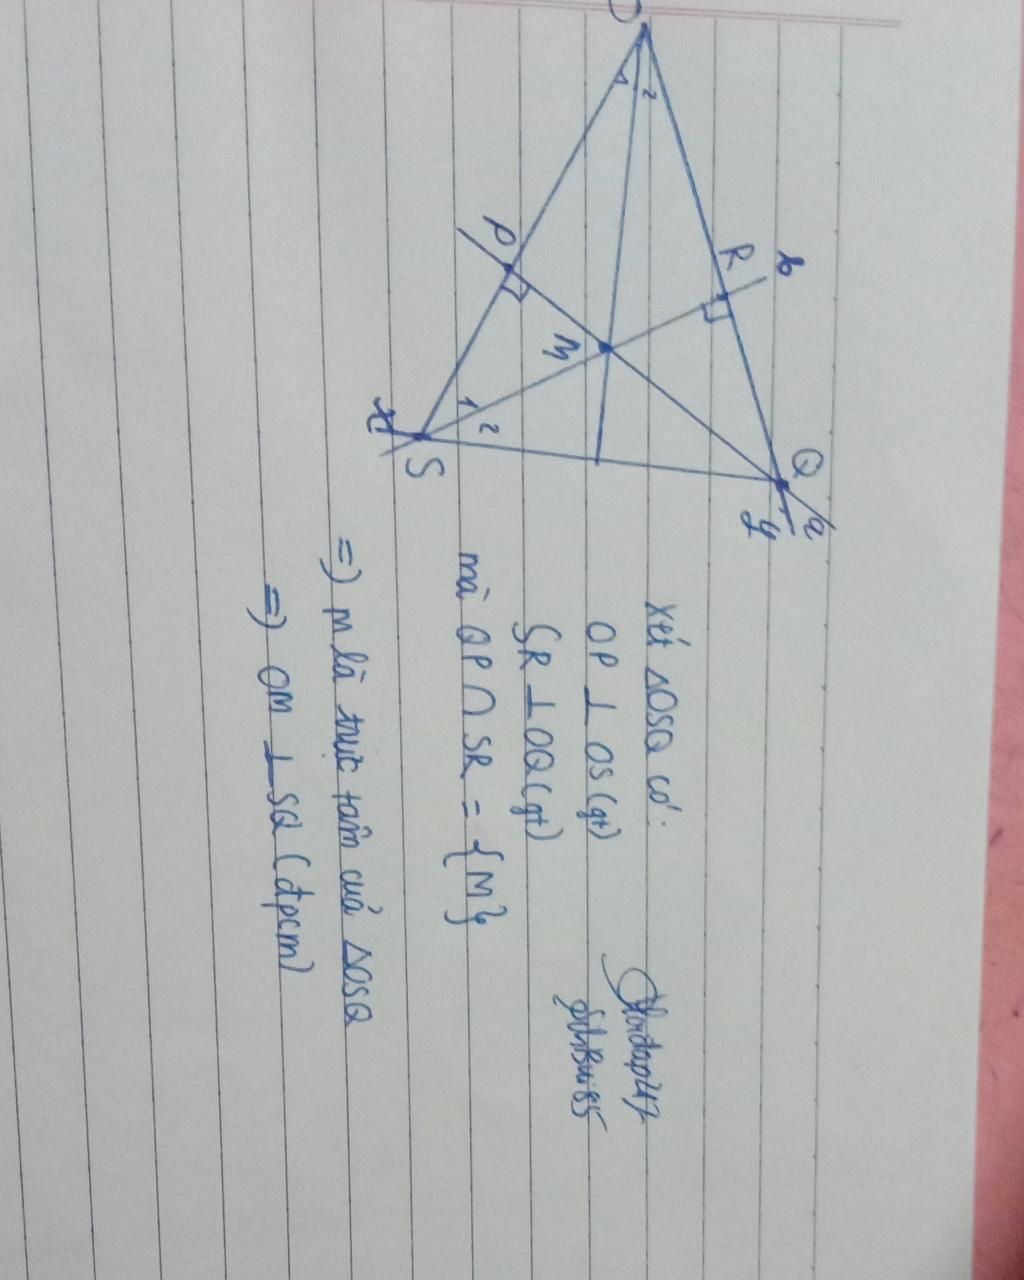 O
1
2
P
R
b
M
1
2
x
S
Q
a
y
Xét ΔOSQ có:
OP ⊥ OS (gt)
SR ⊥ OQ (gt)
mà QP ∩ SR = {M}
=) M là trực tâm của ΔOSQ
=) OM ⊥ SQ (đpcm)
Hoidap247